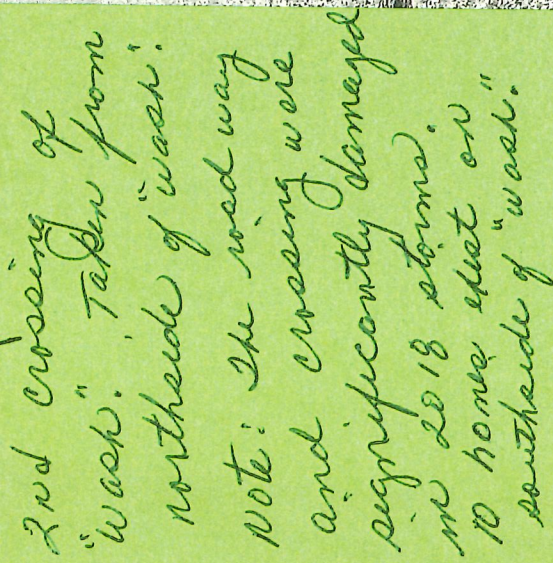 2nd crossing of
"wash". Taken from
northside of "wash".
Note: The road way
and crossing were
significantly damaged
in 2018 storms.
10 homes exist on
southside of "wash."